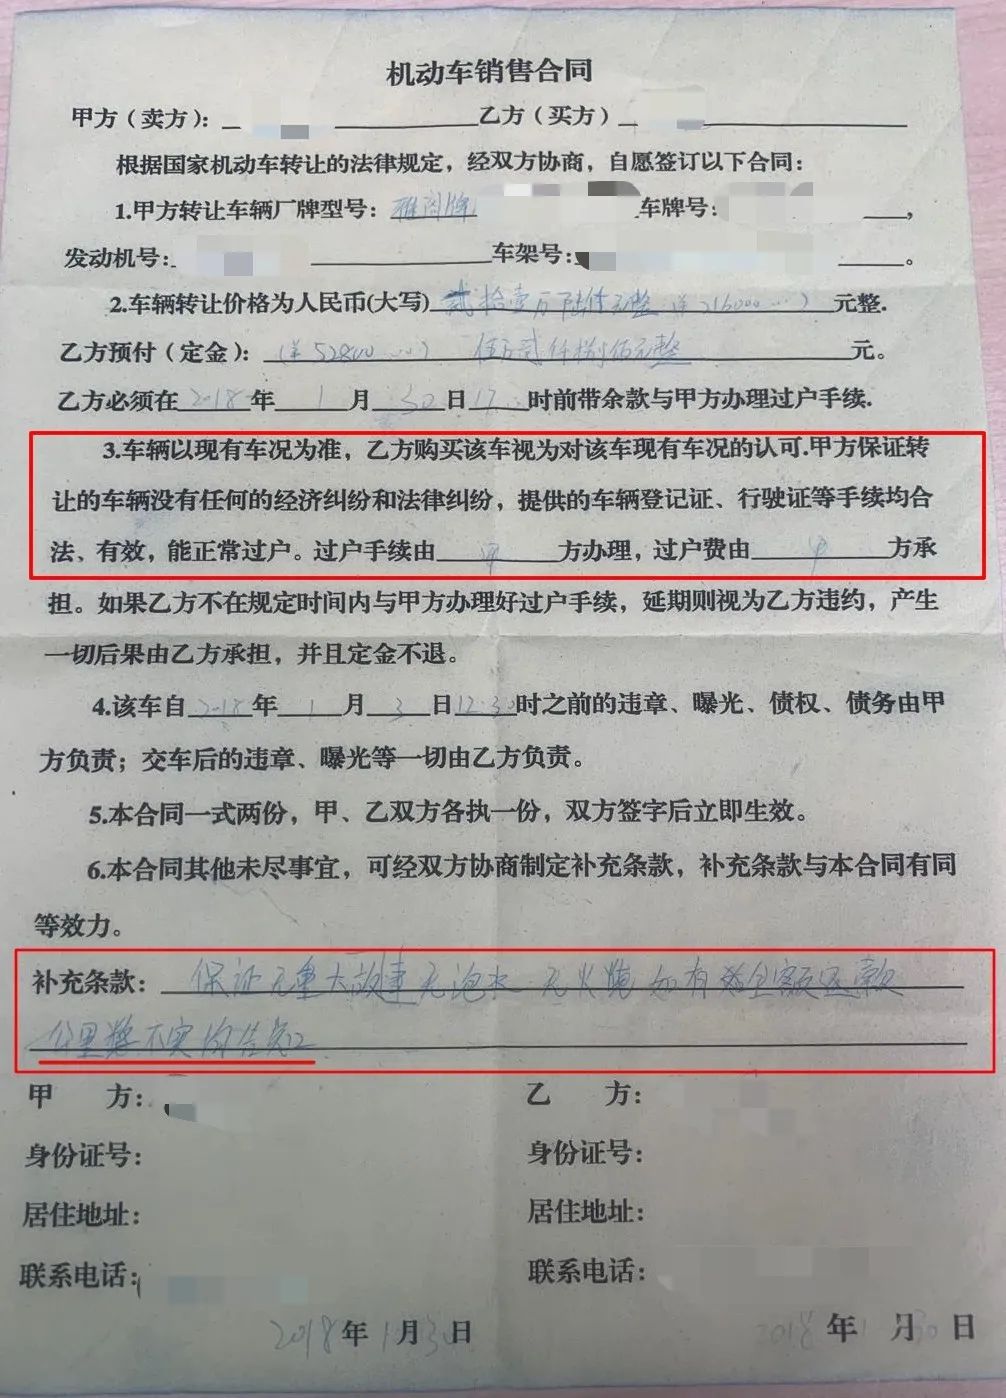 机动车销售合同
甲方（卖方）： 乙方（买方）
根据国家机动车转让的法律规定，经双方协商，自愿签订以下合同：
1.甲方转让车辆厂牌型号：雅阁牌 车牌号： ，
发动机号： 车架号： 。
2.车辆转让价格为人民币(大写) 贰拾壹万陆仟元整 (¥216000...) 元整.
乙方预付（定金）： (¥52800...) 伍万贰仟捌佰元整 元。
乙方必须在2018年1月30日17时前带余款与甲方办理过户手续.
3.车辆以现有车况为准，乙方购买该车视为对该车现有车况的认可.甲方保证转
让的车辆没有任何的经济纠纷和法律纠纷，提供的车辆登记证、行驶证等手续均合
法、有效，能正常过户。过户手续由 甲 方办理，过户费由 甲 方承
担。如果乙方不在规定时间内与甲方办理好过户手续，延期则视为乙方违约，产生
一切后果由乙方承担，并且定金不退。
4.该车自2018年1月3日12:30时之前的违章、曝光、债权、债务由甲
方负责；交车后的违章、曝光等一切由乙方负责。
5.本合同一式两份，甲、乙双方各执一份，双方签字后立即生效。
6.本合同其他未尽事宜，可经双方协商制定补充条款，补充条款与本合同有同
等效力。
补充条款： 保证无重大故事无泡水 无火烧 如有 全额还款
公里数不实
甲 方： 乙 方：
身份证号： 身份证号：
居住地址： 居住地址：
联系电话： 联系电话：
2018年1月30日 2018年1月30日